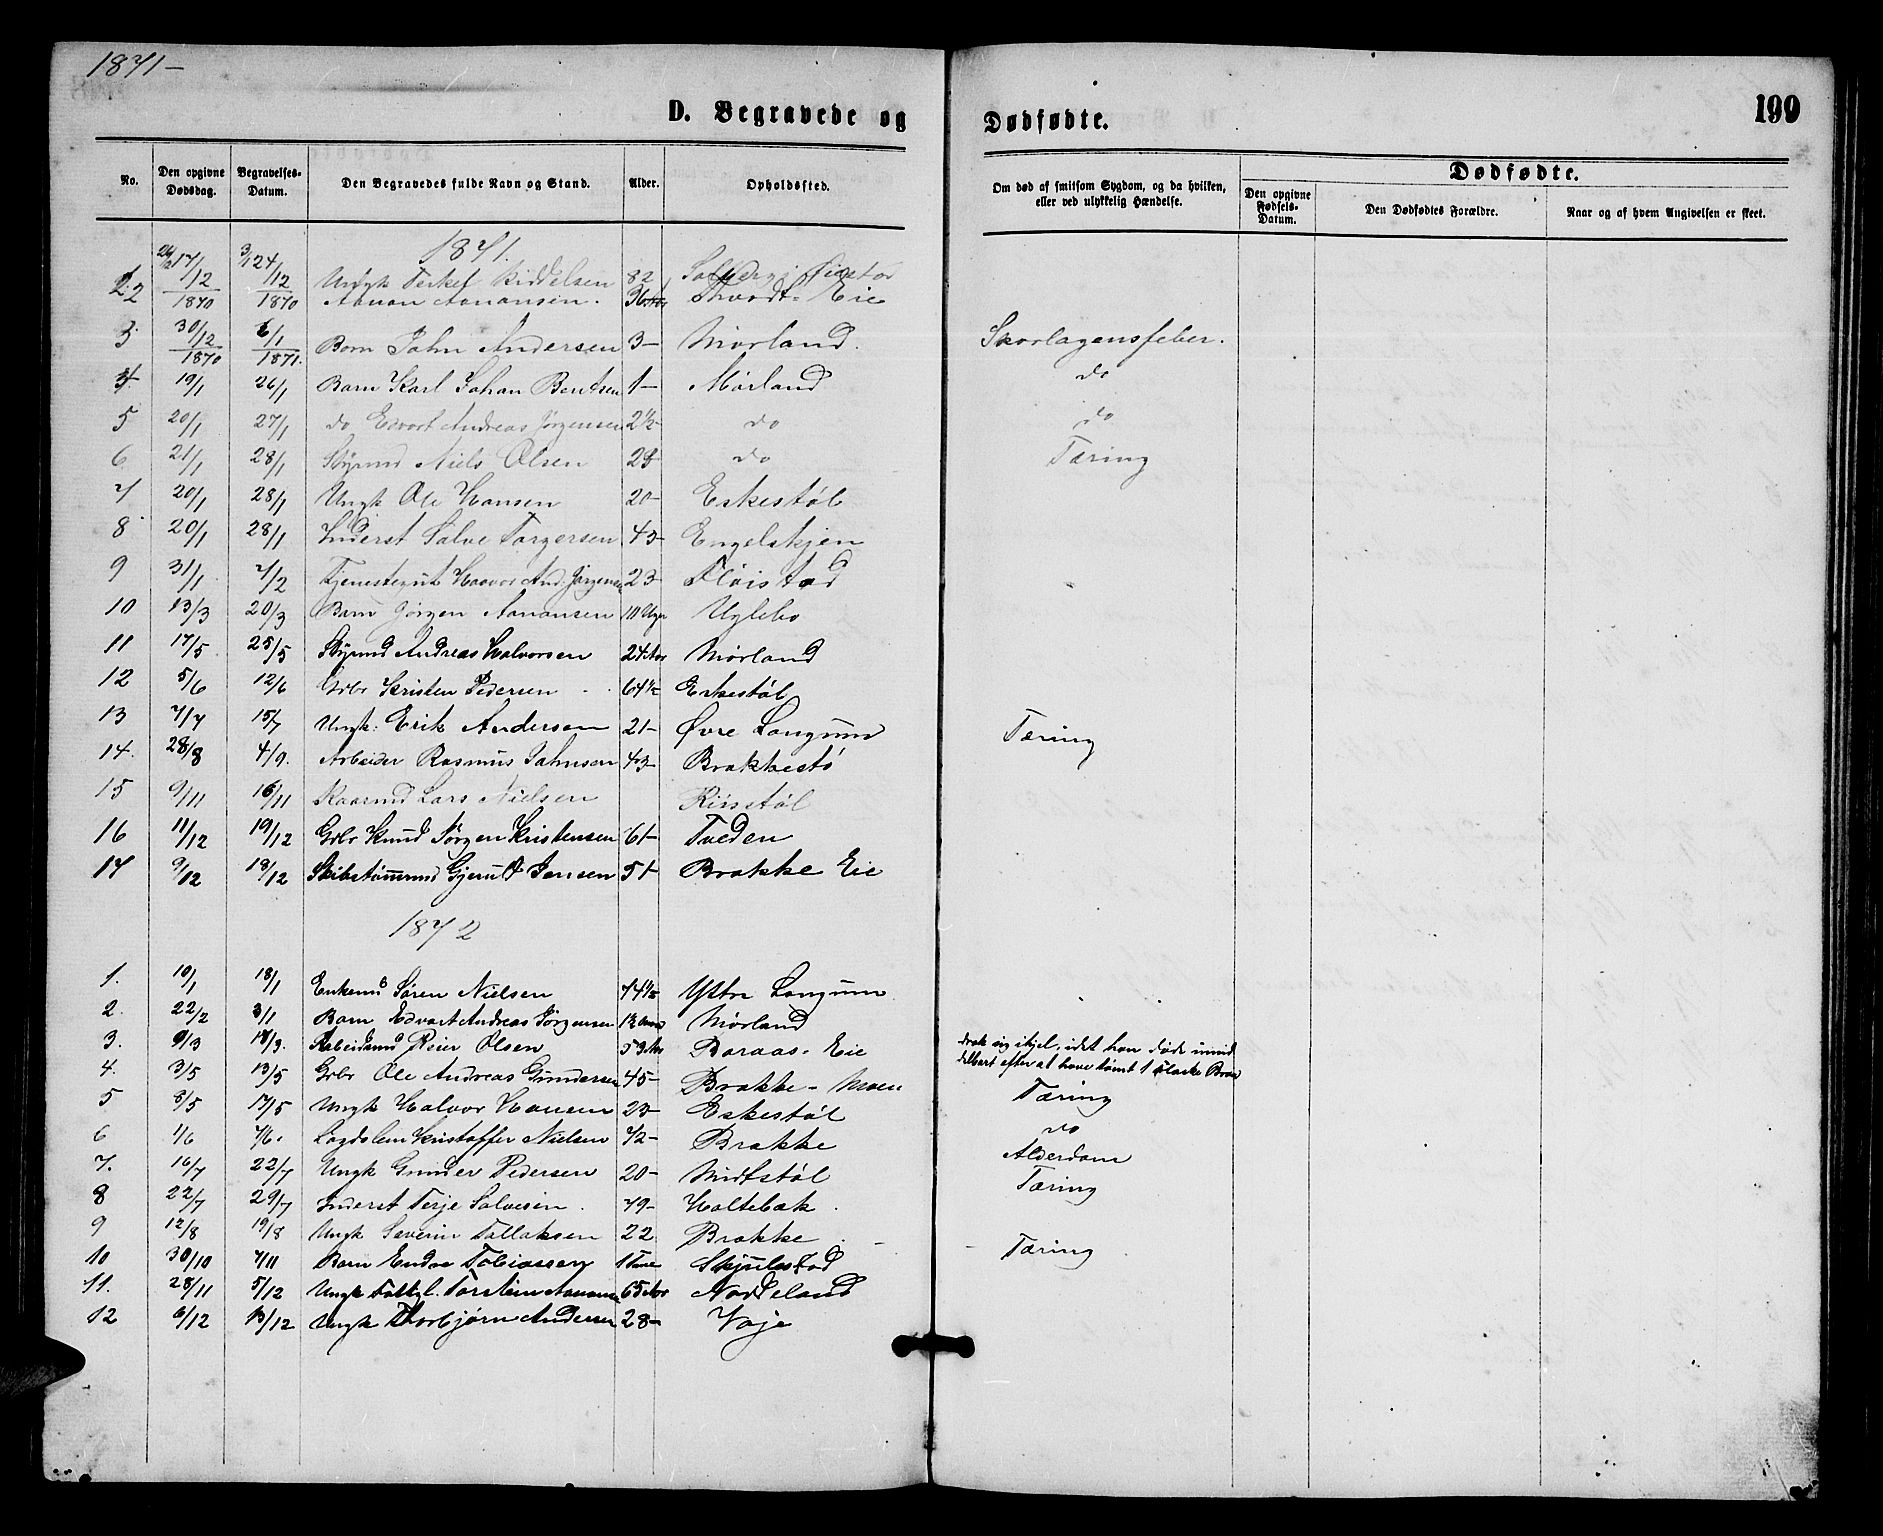 1871-
D. Begravede og Dødfødte.
199
No. Den opgivne Dødsdag. Begravelses-Datum. Den Begravedes fulde Navn og Stand. Alder. Opholdssted. Om død af smitsom Sygdom, og da hvilken, eller ved ulykkelig Hændelse.
Dødfødte.
Den opgivne Fødsels-Datum. Den Dødfødtes Forældre. Naar og af hvem Angivelsen er skeet.
1871.
Ungk Terkel 82
2 17/12 1870 24/12 1870 Aanon Aanonsen. 36 Aar Eie
3 30/12 1870 6/1 1871. Barn John Andersen 3- Mørland. Skarlagensfeber.
4 19/1 26/1 Barn Karl Johan Bentsen 1- Mørland do
5 20/1 27/1 do Edvart Andreas Jørgensen 2½ do do
6 21/1 28/1 Styrmd Niels Olsen 28 do Tæring
7 20/1 28/1 Ungk Ole Hansen 20- Eskestøl
8 20/1 28/1 Inderst Salve Torgersen 43- Engelskjen
9 31/1 7/2 Tjenestegut Haavor And. Jørgensen 23- Fløistad
10 13/3 20/3 Barn Jørgen Aanonsen Uger Uglebo
11 17/5 25/5 Styrmd Andreas Halvorsen 24 Aar Mørland
12 5/6 12/6 Grbr Kristen Pedersen 64½ Eskestøl
13 7/7 15/7 Ungk: Erik Andersen 21- Øvre Longum Tæring
14. 28/8 4/9. Arbeider Rasmus Johnsen 43- Brækkestø
15 9/11 16/11 Kaarmd Lars Nielsen Riisstøl
16 11/12 19/12 Grbr Knud Jørgen Kristensen 61- Tveden
17 9/12 19/12 Skibstømmrmd Gjerult Jensen 51- Brække Eie
1872
1. 10/1 18/1 Enkemd Søren Nielsen 74½ Yttre Longum
2. 22/2 3/1 Barn Edvart Andreas Jørgensen Mørland
3. 9/3 17/3. Arbeidsmd Reier Olsen 53 Aar Baraas-Eie drak sig ihjel, idet han døde umid
delbart efter at have tømt 1 Flaske
4. 3/5 13/5 Grbr Ole Andreas Gundersen 45- Brække-Moen
5 8/5 17/5 Ungk Halvor Hansen 23- Eskestøl Tæring
6 1/6 7/6. Lægdslem Kristoffer Nielsen 72- Brække do
7. 16/7 22/7 Ungk Gunder Pedersen 20- Midtstøl Alderdom
8 22/7 29/7 Inderst Terje Salvesen. 79- Holtebæk. Tæring
9 12/8 19/8 Ungk Severin Tallaksen 22 Brække.
10 30/10 7/11 Barn Endre Tobiassen 1 Time Skjulestad Tæring
11. 28/11 5/12 Ungk Torstein Aanonsen 65 Aar Noddeland
12 6/12 13/12 Ungk Thorbjørn Andersen 28- Voje